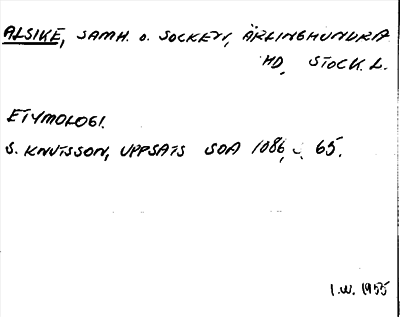 ALSIKE, SAMH. o. SOCKEN, ÄRLINGHUNDRA
HD, STOCK. L.
ETYMOLOGI.
S. KNUTSSON, UPPSATS SOA 1086, s. 65.
I.W. 1955